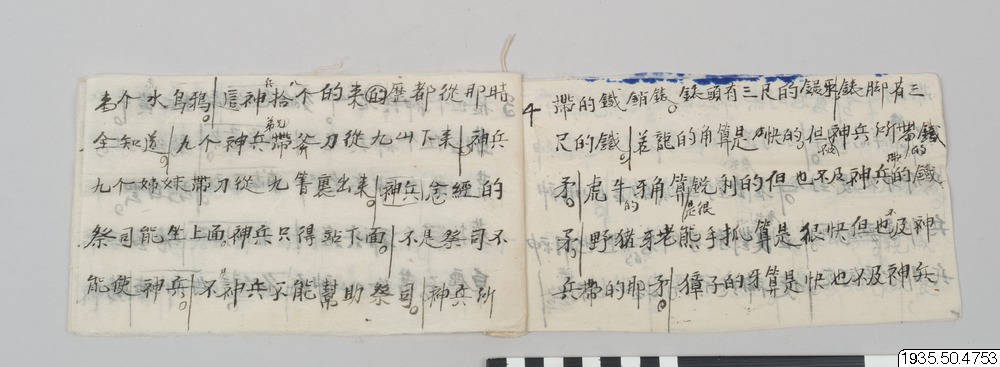 个水乌鸦這神拾个的来歷都從那時
兵 八
全知道九个神兵帶斧刀從九山下来神兵
兄
九个姊妹帶刀從九箐裏出来神兵念經的
祭司能坐上面神兵只得站下面不是祭司不
能使神兵不神兵不能幫助祭司神兵所
4
帶的鐵錶頭有三尺的錶脚有三
尺的鐵若龍的角算是快的但神兵所帶鐵
的
矛虎牛牙角算銳利的但也不及神兵的鐵
的 是很 帶
矛野猪牙老熊手抓算是很快但也及神
不
兵帶的那矛獐子的牙算是快也不及神兵
1935.50.4753